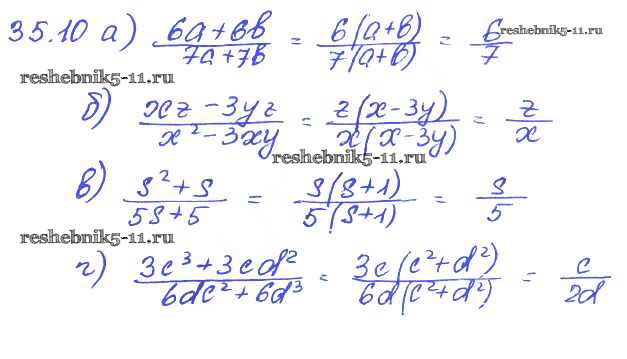 35.10 а) (6a+6b)/(7a+7b) = 6(a+b)/7(a+b) = 6/7
reshebnik5-11.ru
reshebnik5-11.ru
б) (xz-3yz)/(x²-3xy) = z(x-3y)/x(x-3y) = z/x
reshebnik5-11.ru
в) (s²+s)/(5s+5) = s(s+1)/5(s+1) = s/5
reshebnik5-11.ru
г) (3c³+3cd²)/(6dc²+6d³) = 3c(c²+d²)/6d(c²+d²) = c/2d